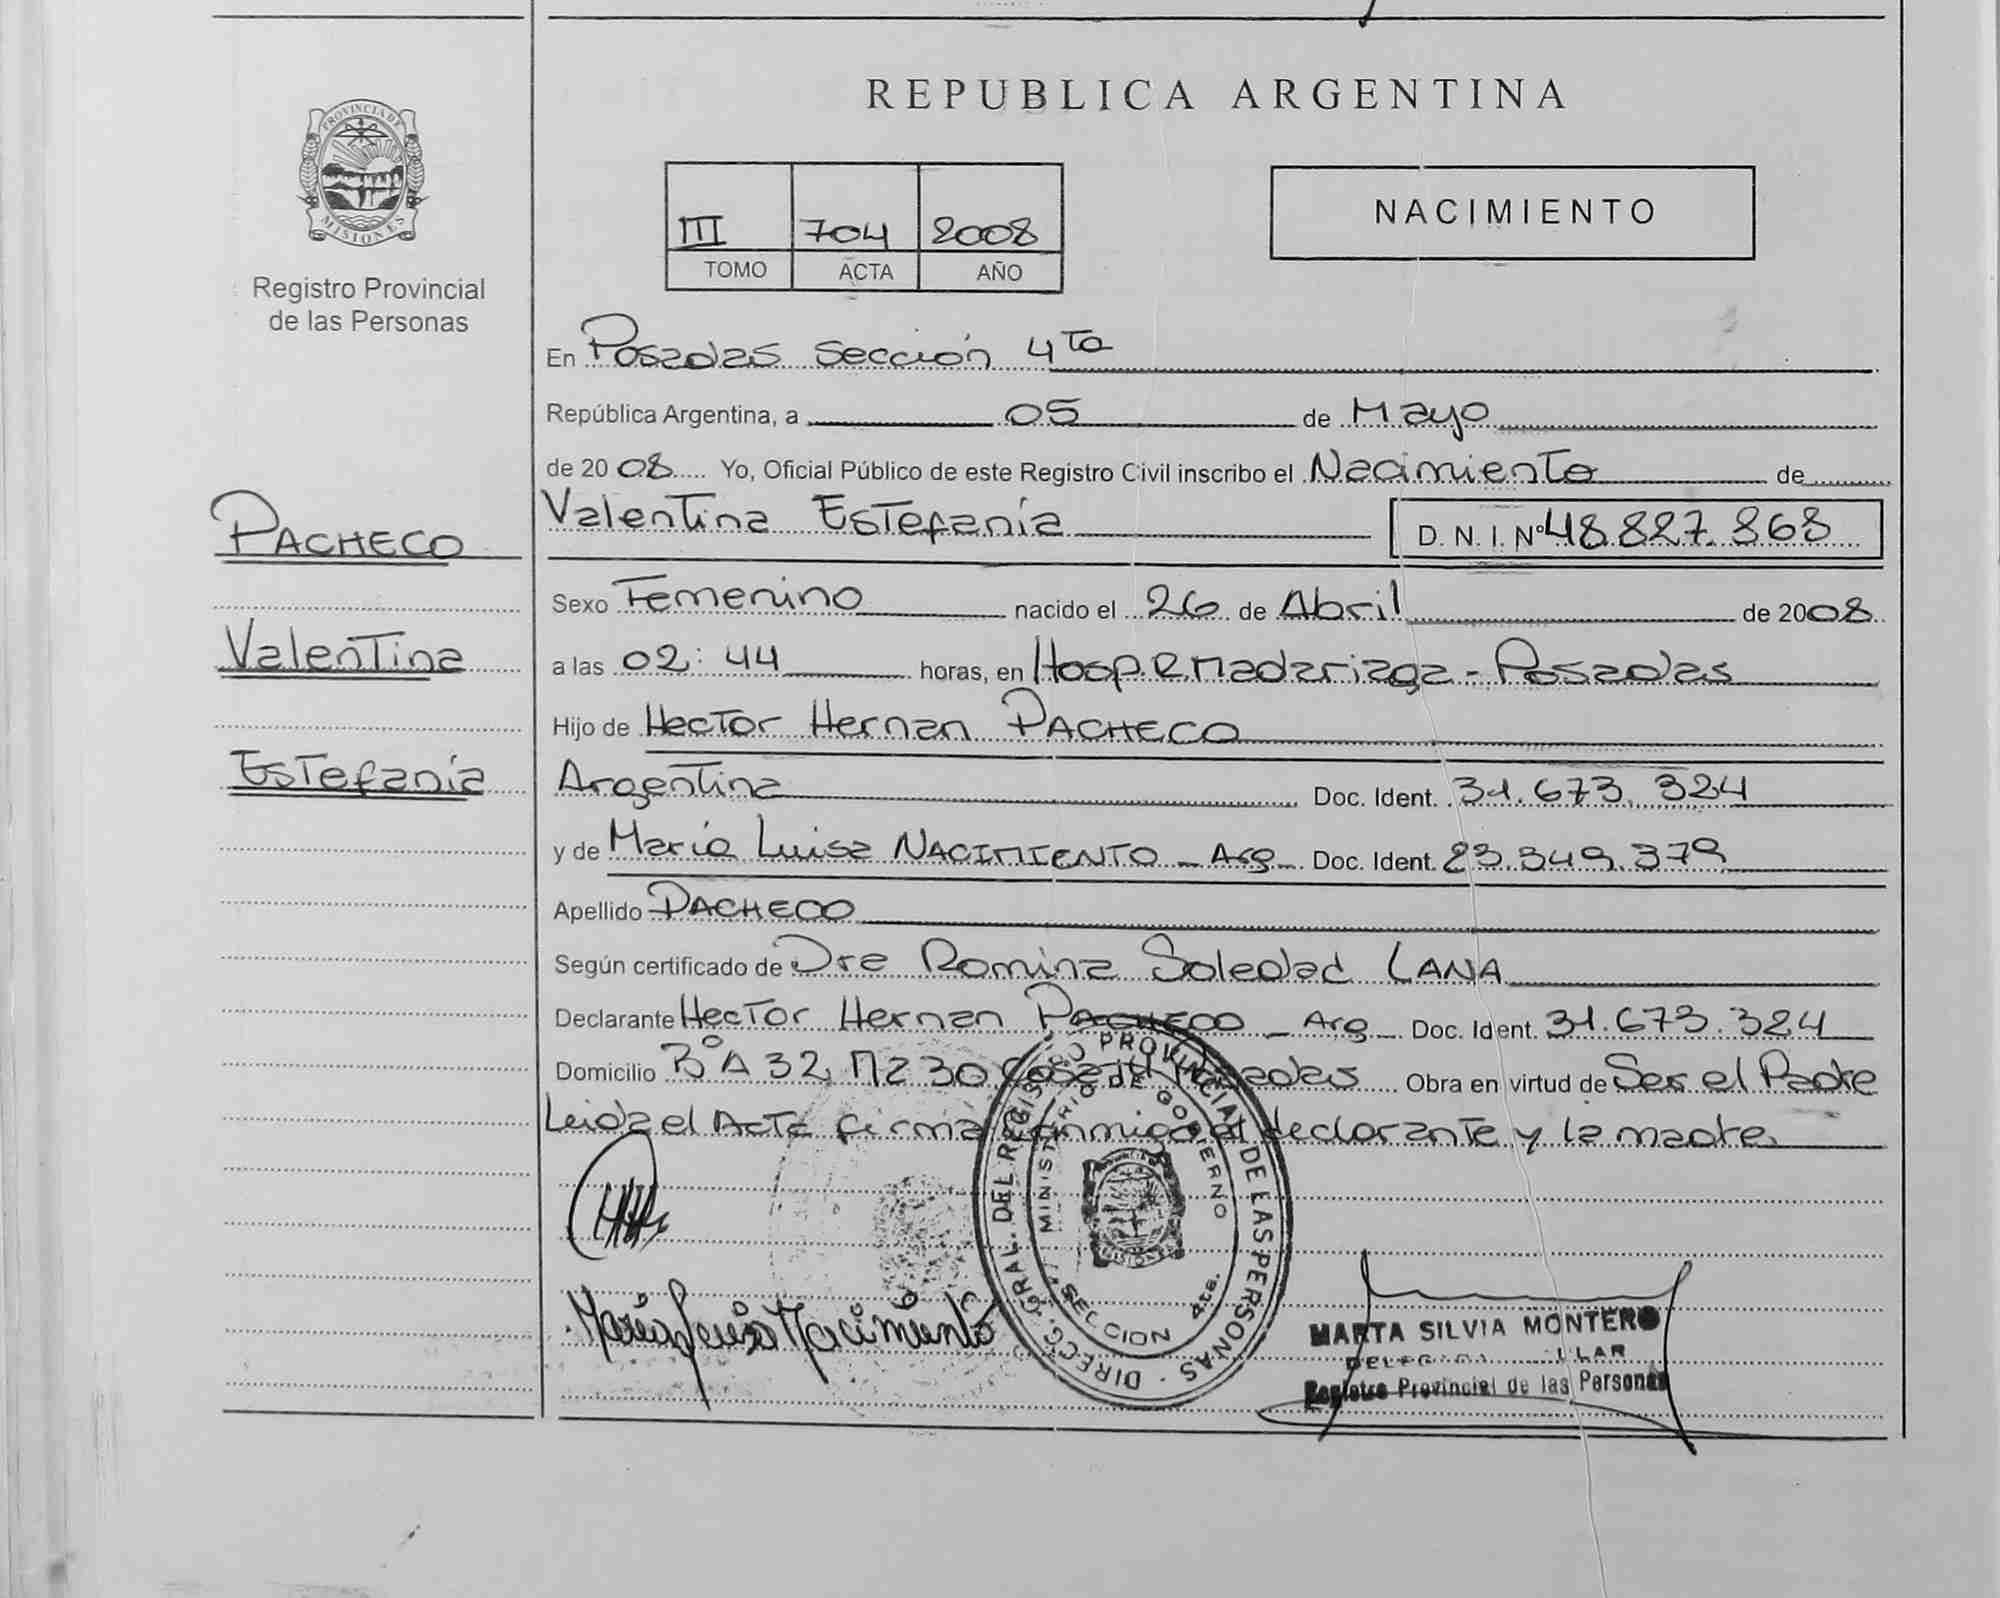 REPUBLICA ARGENTINA
PROVINCIA DE
MISIONES
Registro Provincial
de las Personas
III 704 2008
TOMO ACTA AÑO
NACIMIENTO
En Posadas sección 4ta
República Argentina, a 05 de Mayo
de 2008 Yo, Oficial Público de este Registro Civil inscribo el Nacimiento de
PACHECO
Valentina Estefanía D. N. I. Nº 48.827.868
Sexo Femenino nacido el 26 de Abril de 2008
Valentina
a las 02:44 horas, en Hosp. R. Madariaga - Posadas
Hijo de Hector Hernan PACHECO
Estefanía
Argentina Doc. Ident. 31.673.324
y de María Luisa NACIMIENTO - Arg - Doc. Ident. 23.349.379
Apellido PACHECO
Según certificado de Dra Romina Soledad LANA
Declarante Hector Hernan PACHECO - Arg - Doc. Ident. 31.673.324
Domicilio Bº A 32 Mz 30 Casa Posadas Obra en virtud de Ser el Padre
Leida el Acta firma conmigo el declarante y la madre
DIRECC. GRAL. DEL REGISTRO PROVINCIAL DE LAS PERSONAS
MINISTERIO DE GOBERNO
SECCION 4ta.
María Luisa Nacimiento
MARTA SILVIA MONTERO
Registro Provincial de las Personas